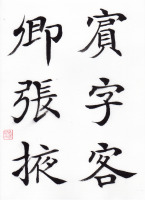 賓字客
卿張掖